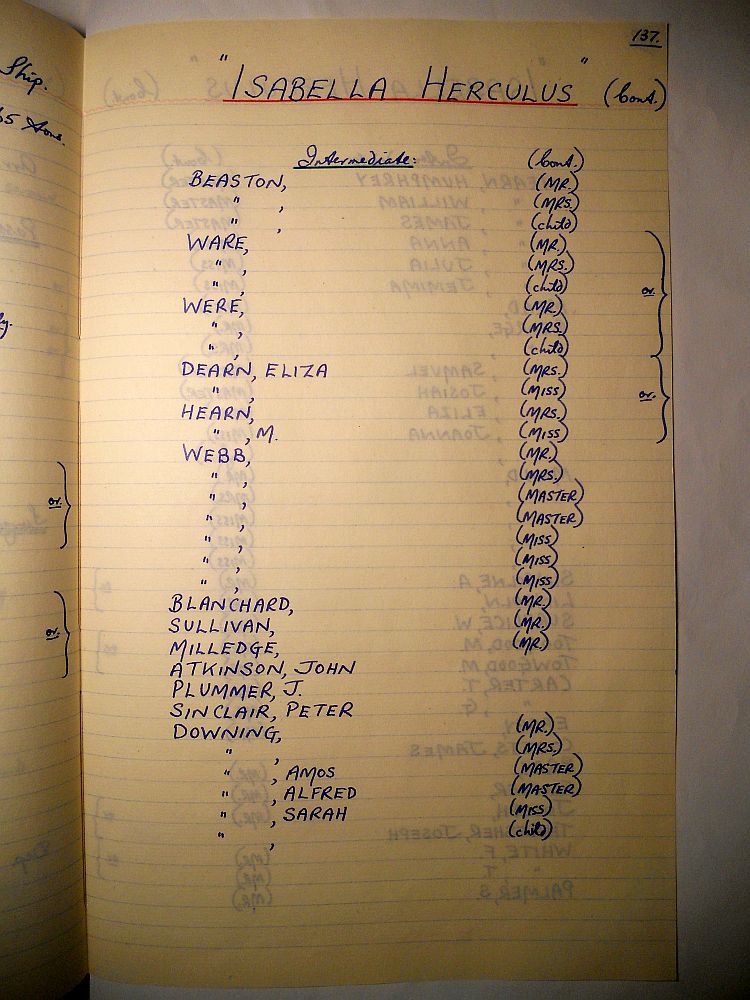 137.
"ISABELLA HERCULUS" (Cont.)
Intermediate: (Cont.)
BEASTON, (MR.)
" , (MRS.)
" , (child)
WARE, (MR.)
" , (MRS.)
" , (child) or.
WERE, (MR.)
" , (MRS.)
" , (child)
DEARN, ELIZA (MRS.)
" , (MISS) or.
HEARN, (MRS.)
" , M. (MISS)
WEBB, (MR.)
" , (MRS.)
" , (MASTER)
" , (MASTER)
" , (MISS)
" , (MISS)
" , (MISS)
BLANCHARD, (MR.)
SULLIVAN, (MR.)
MILLEDGE, (MR)
ATKINSON, JOHN
PLUMMER, J.
SINCLAIR, PETER
DOWNING, (MR.)
" , (MRS.)
" , AMOS (MASTER)
" , ALFRED (MASTER)
" , SARAH (MISS)
" , (child)
Ship.
65 Tons.
or.
or.